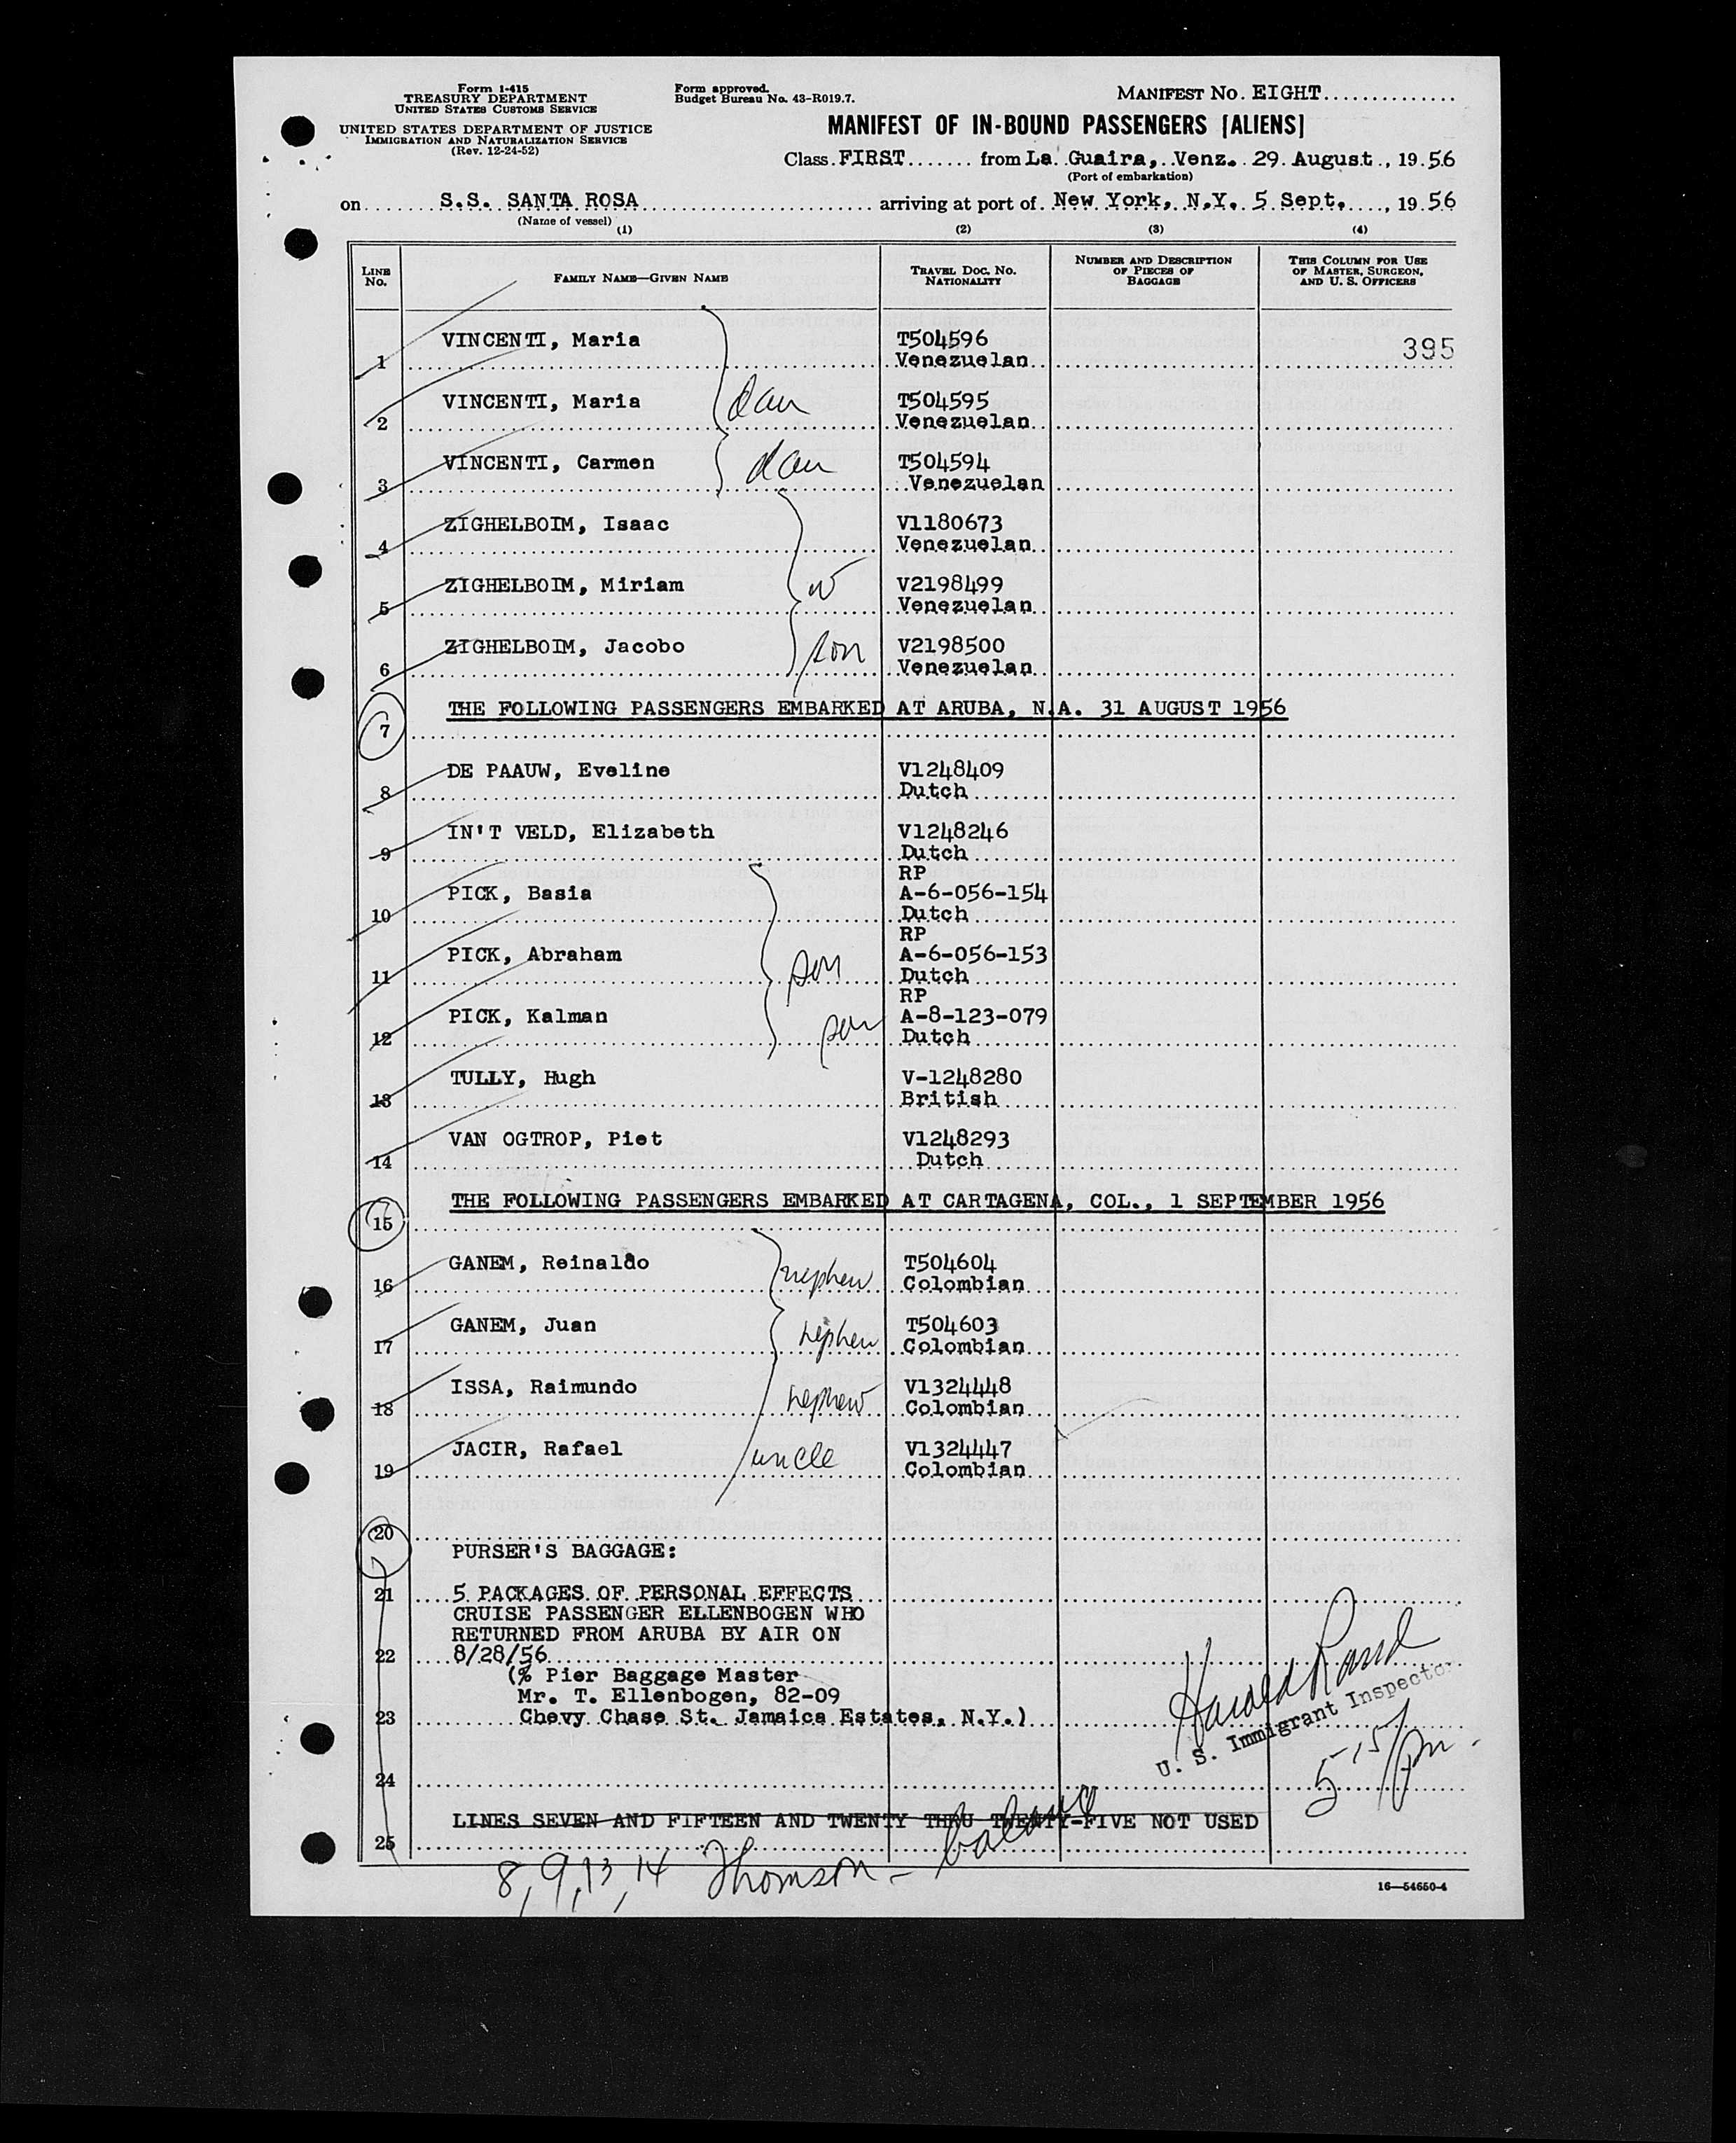 Form I-415
TREASURY DEPARTMENT
UNITED STATES CUSTOMS SERVICE
UNITED STATES DEPARTMENT OF JUSTICE
IMMIGRATION AND NATURALIZATION SERVICE
(Rev. 12-24-52)
Form approved.
Budget Bureau No. 43-R019.7.
MANIFEST No. EIGHT
MANIFEST OF IN-BOUND PASSENGERS [ALIENS]
Class FIRST from La Guaira, Venz. 29 August, 1956
(Port of embarkation)
on S.S. SANTA ROSA arriving at port of New York, N.Y. 5 Sept., 1956
(Name of vessel)
(1) (2) (3) (4)
LINE No. FAMILY NAME—GIVEN NAME TRAVEL DOC. NO. NATIONALITY NUMBER AND DESCRIPTION OF PIECES OF BAGGAGE THIS COLUMN FOR USE OF MASTER, SURGEON, AND U. S. OFFICERS
VINCENTI, Maria T504596 395
1 Venezuelan
VINCENTI, Maria dau T504595
2 Venezuelan
VINCENTI, Carmen dau T504594
3 Venezuelan
ZIGHELBOIM, Isaac V1180673
4 Venezuelan
ZIGHELBOIM, Miriam w V2198499
5 Venezuelan
ZIGHELBOIM, Jacobo son V2198500
6 Venezuelan
THE FOLLOWING PASSENGERS EMBARKED AT ARUBA, N.A. 31 AUGUST 1956
7
DE PAAUW, Eveline V1248409
8 Dutch
IN'T VELD, Elizabeth V1248246
9 Dutch
RP
PICK, Basia A-6-056-154
10 Dutch
RP
PICK, Abraham son A-6-056-153
11 Dutch
RP
PICK, Kalman son A-8-123-079
12 Dutch
TULLY, Hugh V-1248280
13 British
VAN OGTROP, Piet V1248293
14 Dutch
THE FOLLOWING PASSENGERS EMBARKED AT CARTAGENA, COL., 1 SEPTEMBER 1956
15
GANEM, Reinaldo nephew T504604
16 Colombian
GANEM, Juan nephew T504603
17 Colombian
ISSA, Raimundo nephew V1324448
18 Colombian
JACIR, Rafael uncle V1324447
19 Colombian
20
PURSER'S BAGGAGE:
21 5 PACKAGES OF PERSONAL EFFECTS
CRUISE PASSENGER ELLENBOGEN WHO
RETURNED FROM ARUBA BY AIR ON
22 8/28/56
(% Pier Baggage Master
Mr. T. Ellenbogen, 82-09
23 Chevy Chase St. Jamaica Estates, N.Y.)
Harold Rand
U. S. Immigrant Inspector
5 15/pm
24
LINES SEVEN AND FIFTEEN AND TWENTY THRU TWENTY-FIVE NOT USED
25
8, 9, 13, 14 Thomson - balance
16—54650-4